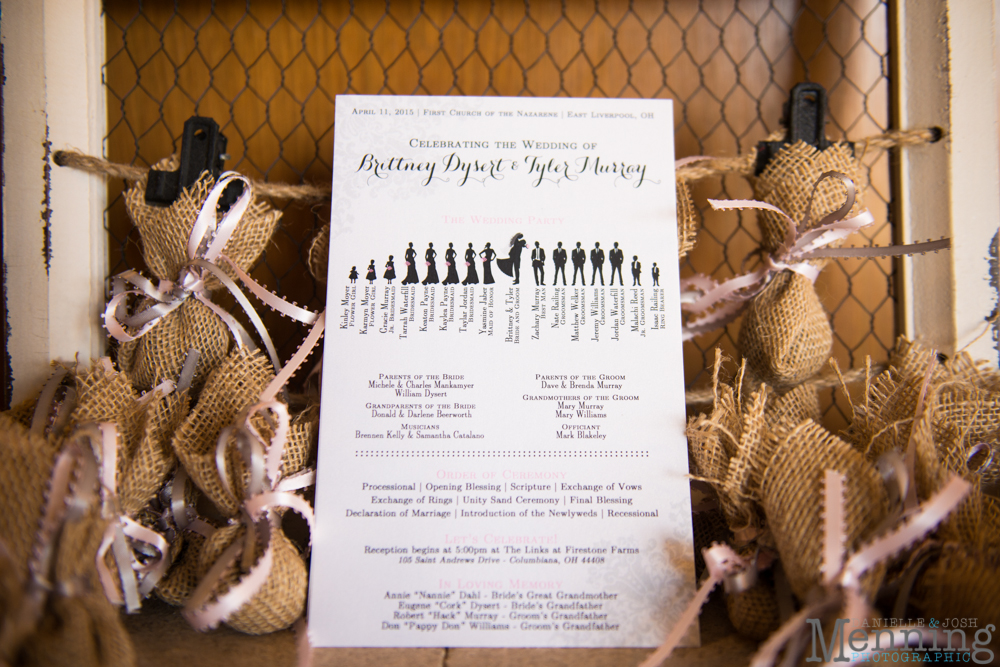 April 11, 2015 | First Church of the Nazarene | East Liverpool, OH
Celebrating the Wedding of
Brittney Dysert & Tyler Murray
The Wedding Party
Kinley Moyer
Flower Girl
Karmyn Moyer
Flower Girl
Gracie Murray
Jr. Bridesmaid
Tarrah Waterfill
Bridesmaid
Keaton Payne
Bridesmaid
Kaylea Payne
Bridesmaid
Taylar Jordan
Bridesmaid
Yasmine Jaber
Maid of Honor
Brittney & Tyler
Bride and Groom
Zachary Murray
Best Man
Nate Railing
Groomsman
Matthew Welker
Groomsman
Jeremy Williams
Groomsman
Jordan Waterfill
Groomsman
Malachi Dahl
Jr. Groomsman
Isaac Railing
Ring Bearer
Parents of the Bride
Michele & Charles Mankamyer
William Dysert
Grandparents of the Bride
Donald & Darlene Beerworth
Musicians
Brennen Kelly & Samantha Catalano
Parents of the Groom
Dave & Brenda Murray
Grandmothers of the Groom
Mary Murray
Mary Williams
Officiant
Mark Blakeley
Order of Ceremony
Processional | Opening Blessing | Scripture | Exchange of Vows
Exchange of Rings | Unity Sand Ceremony | Final Blessing
Declaration of Marriage | Introduction of the Newlyweds | Recessional
Let's Celebrate!
Reception begins at 5:00pm at The Links at Firestone Farms
105 Saint Andrews Drive - Columbiana, OH 44408
In Loving Memory
Annie "Nannie" Dahl - Bride's Great Grandmother
Eugene "Cork" Dysert - Bride's Grandfather
Robert "Hack" Murray - Groom's Grandfather
Don "Pappy Don" Williams - Groom's Grandfather
DANIELLE & JOSH
Menning
PHOTOGRAPHIC